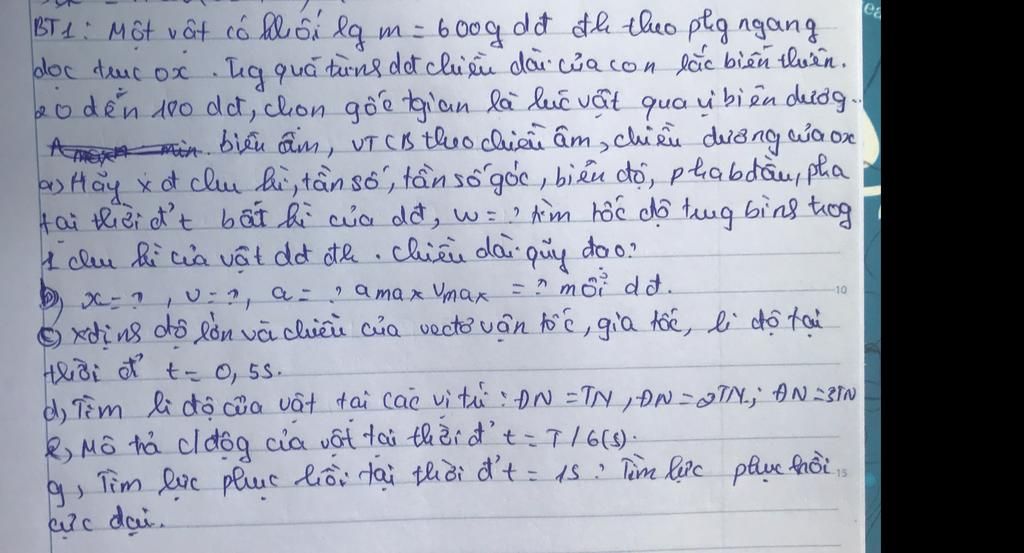 BT1: Một vật có khối lg m = 600g dđ đh theo phg ngang
dọc trục ox. Trg quá trình dđ chiều dài của con lắc biến thiên.
20 đến 100 dđ, chọn gốc tgian là lúc vật qua vị biên dương.
biên âm, VTCB theo chiều âm, chiều dương của ox
a, Hãy xđ chu kì, tần số, tần số góc, biên độ, pha bđầu, pha
tại thời đ' t bất kì của dđ, w = ? tìm tốc độ trug bình trog
1 chu kì của vật dđ đh. chiều dài quỹ đạo?
b, x = ?, v = ?, a = ? amax vmax = ? mỗi dđ.
c, xđịnh độ lớn và chiều của vectơ vận tốc, gia tốc, li độ tại
thời đ' t = 0,5s.
d, Tìm li độ của vật tại các vị trí: ĐN = TN, ĐN = 2TN; ĐN = 3TN
e, Mô tả c/động của vật tại thời đ' t = T/6(s).
g, Tìm lực phục hồi tại thời đ' t = 1s? Tìm lực phục hồi
cực đại.
10
15